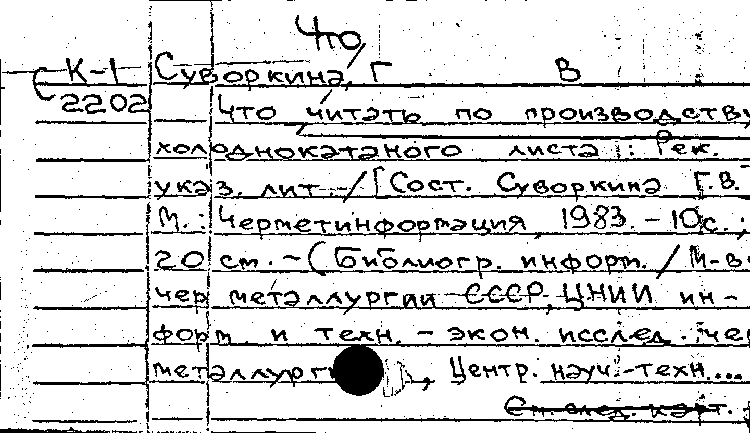 Что
К-1 Суворкина, Г В
2202 Что читать по производству
холоднокатаного листа : Рек.
указ. лит. -/ [Сост. Суворкина Г.В.
М. : Черметинформация, 1983. - 10с. ;
20 см. - (Библиогр. информ. / М-во
чер металлургии СССР, ЦНИИ ин-
форм. и техн. - экон. исслед. чер
металлурги , Центр. науч.-техн....
См. след. карт.